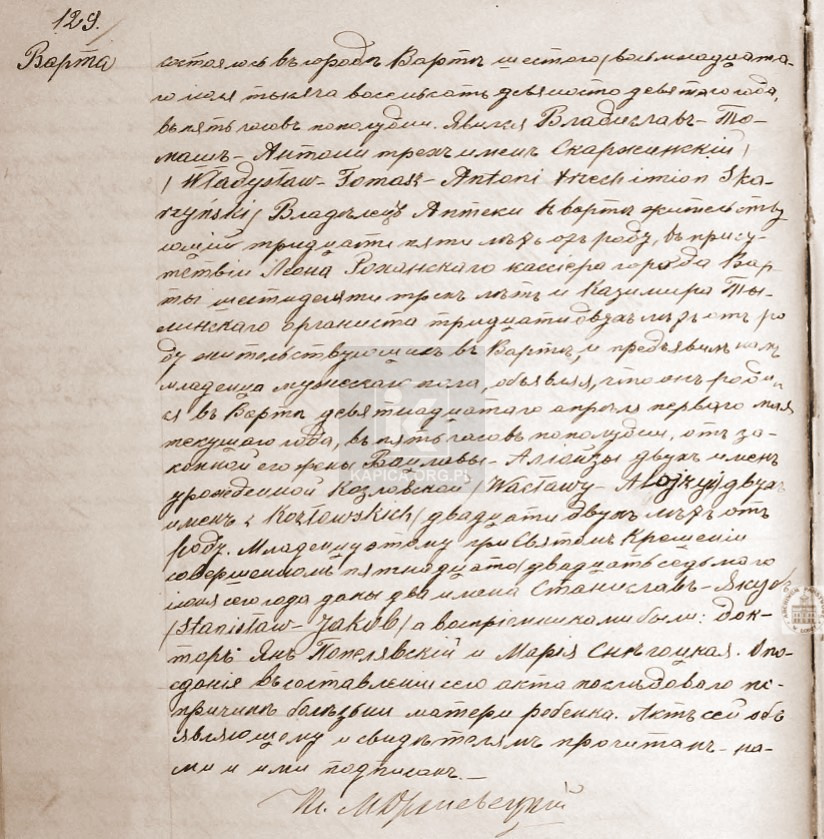 129.
Варта
состоялось въ городѣ Вартѣ шестого/восьмнадцата-
го мая тысяча восемьсотъ девяносто девятаго года,
въ пять часовъ пополудни. Явился Владиславъ-То-
машъ-Антони трехъ именъ Скаржинскій/
/Władysław-Tomasz-Antoni trzech imion Ska-
rzyński/ Владѣлецъ Аптеки въ Вартѣ жительству
ющій тридцати пяти лѣтъ отъ роду, въ прису-
тствіи Леона Рожанскаго кассіера города Вар-
ты шестидесяти трехъ лѣтъ и Казимира Ты-
линскаго органиста тридцати двухъ лѣтъ отъ ро
ду жительствующихъ въ Вартѣ, и предъявилъ намъ
младенца мужескаго пола, объявляя, что онъ родил
ся въ Вартѣ девятнадцатаго апрѣля первого мая
текущаго года, въ пять часовъ пополудни, отъ за-
конной его жены Вацлавы-Алойзы двухъ именъ
урожденной Козловской /Wacławy-Alojzyi двухъ
именъ z Kozłowskich/ двадцати двухъ лѣтъ отъ
роду. Младенцу этому при Святомъ Крещеніи
совершенномъ пятнадцато/двадцать седьмого
мая сего года даны два имена Станиславъ-Якубъ
/Stanisław-Jakób/ а воспріемниками были: Док-
торъ Янъ Попелявскій и Марія Снѣгоцкая. Опо-
зданіе въ составленіи сего акта послѣдовало по
причинѣ болѣзни матери ребенка. Актъ сей объ
являющему и свидѣтелямъ прочитанъ, на-
ми и ими подписанъ.
KAPICA.ORG.PL